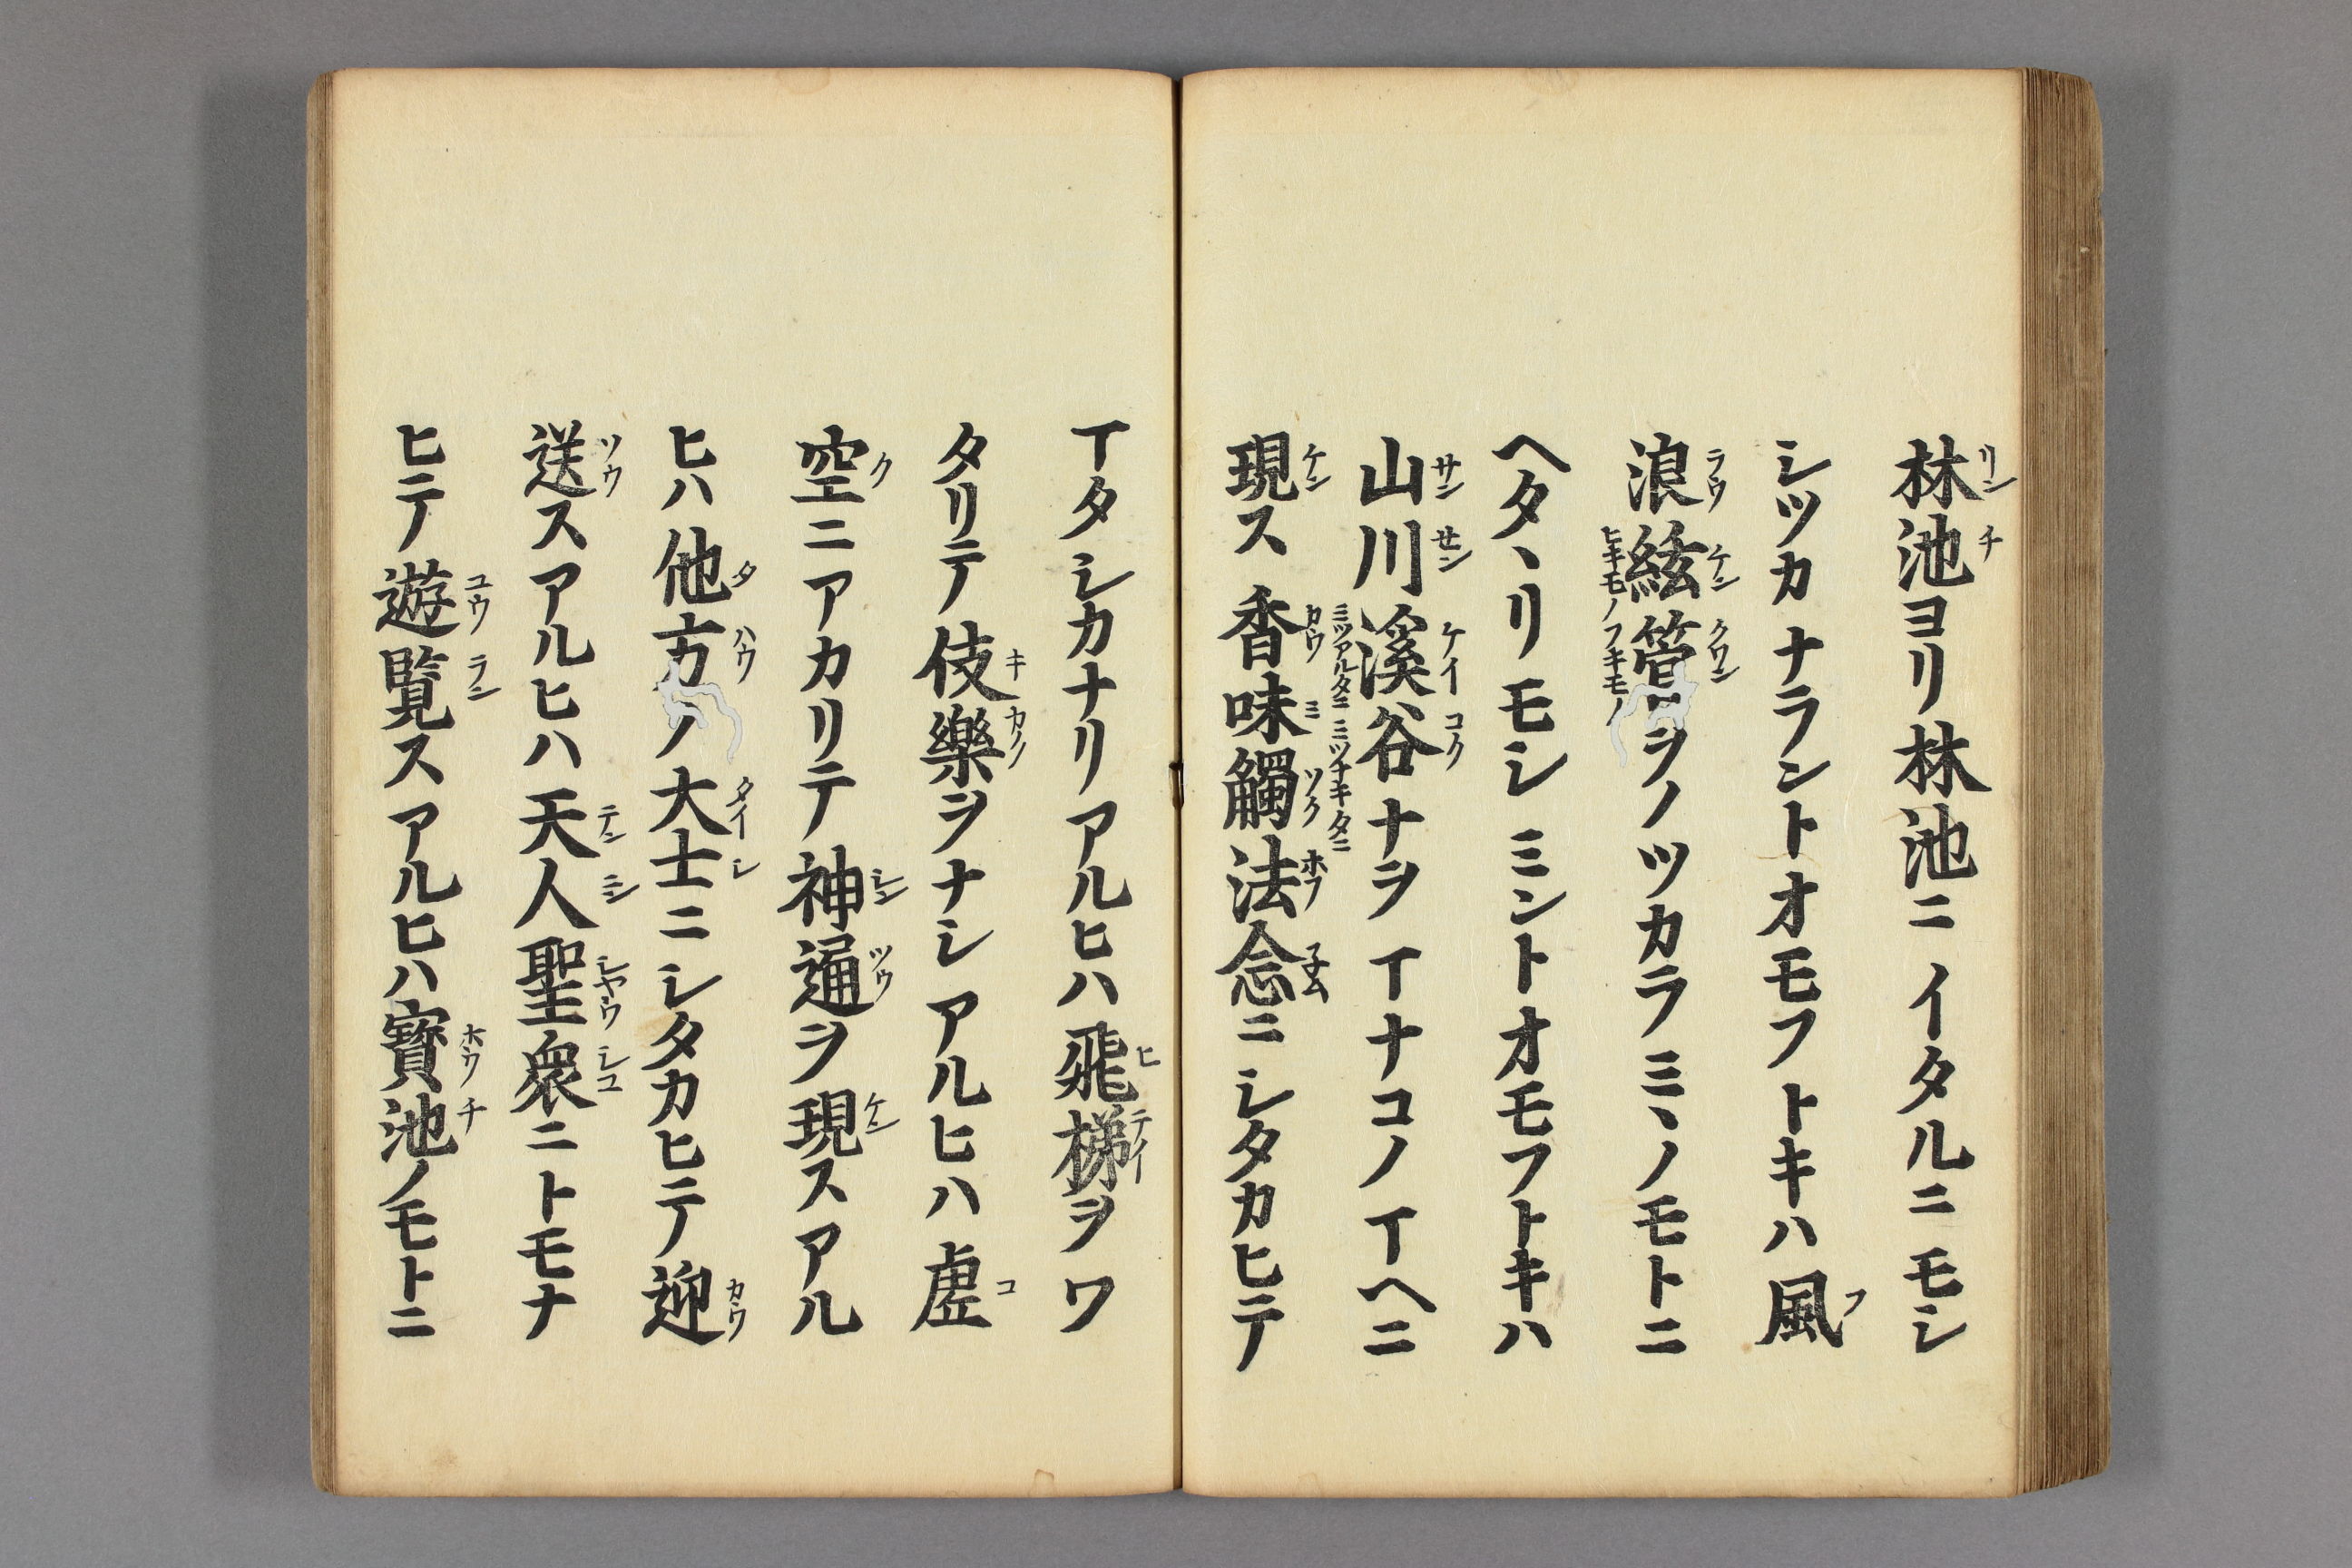 林池ヨリ林池ニイタルニモシ
シツカナラントオモフトキハ風
浪絃管ヲノツカラミヽノモトニ
ヘタヽリモシミントオモフトキハ
山川溪谷ナヲイナコノイヘニ
現ス香味觸法念ニシタカヒテ
イタシカナリアルヒハ飛梯ヲワ
タリテ伎樂ヲナシアルヒハ虚
空ニアカリテ神通ヲ現スアル
ヒハ他方ノ大士ニシタカヒテ迎
送スアルヒハ天人聖衆ニトモナ
ヒテ遊覧スアルヒハ寳池ノモトニ